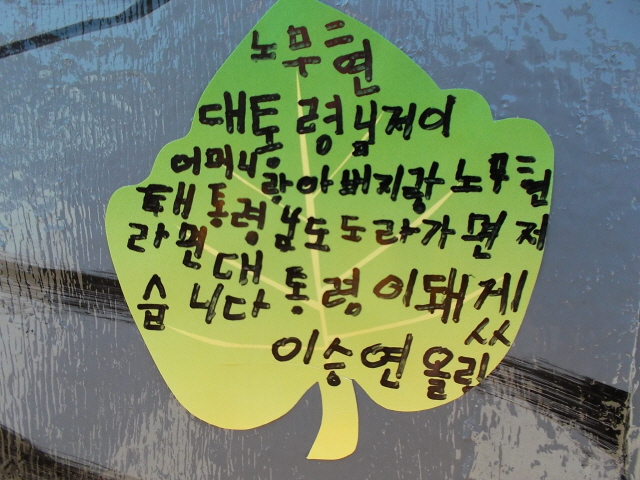 노무현
대통령님저이
어머니랑아버지랑노무현
대통령님도도라가면저
라면대통령이돼겠
습니다
이승연올림